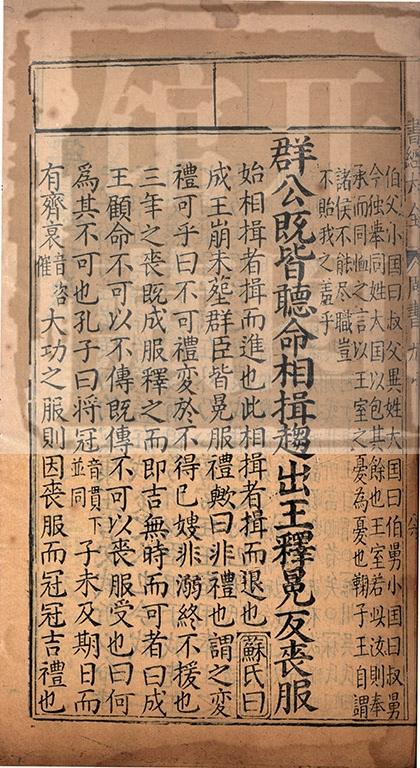 伯父小国曰叔父異姓大国曰伯舅小国曰叔舅
今独举同姓大国以包其餘也王室若以汝則奉
承而同恤之言以王室之憂為憂也鞠子王自謂
諸侯不能尽職豈
不貽我之羞乎
群公既皆聽命相揖趨出王釋冕反喪服
始相揖者揖而進也此相揖者揖而退也蘇氏曰
成王崩未塟群臣皆冕服禮歟曰非禮也謂之変
禮可乎曰不可禮変於不得已嫂非溺終不援也
三年之喪既成服釋之而即吉無時而可者曰成
王顧命不可以不傳既傳不可以喪服受也曰何
為其不可也孔子曰将冠音貫下並同子未及期日而
有齊衰音咨催大功之服則因喪服而冠冠吉禮也